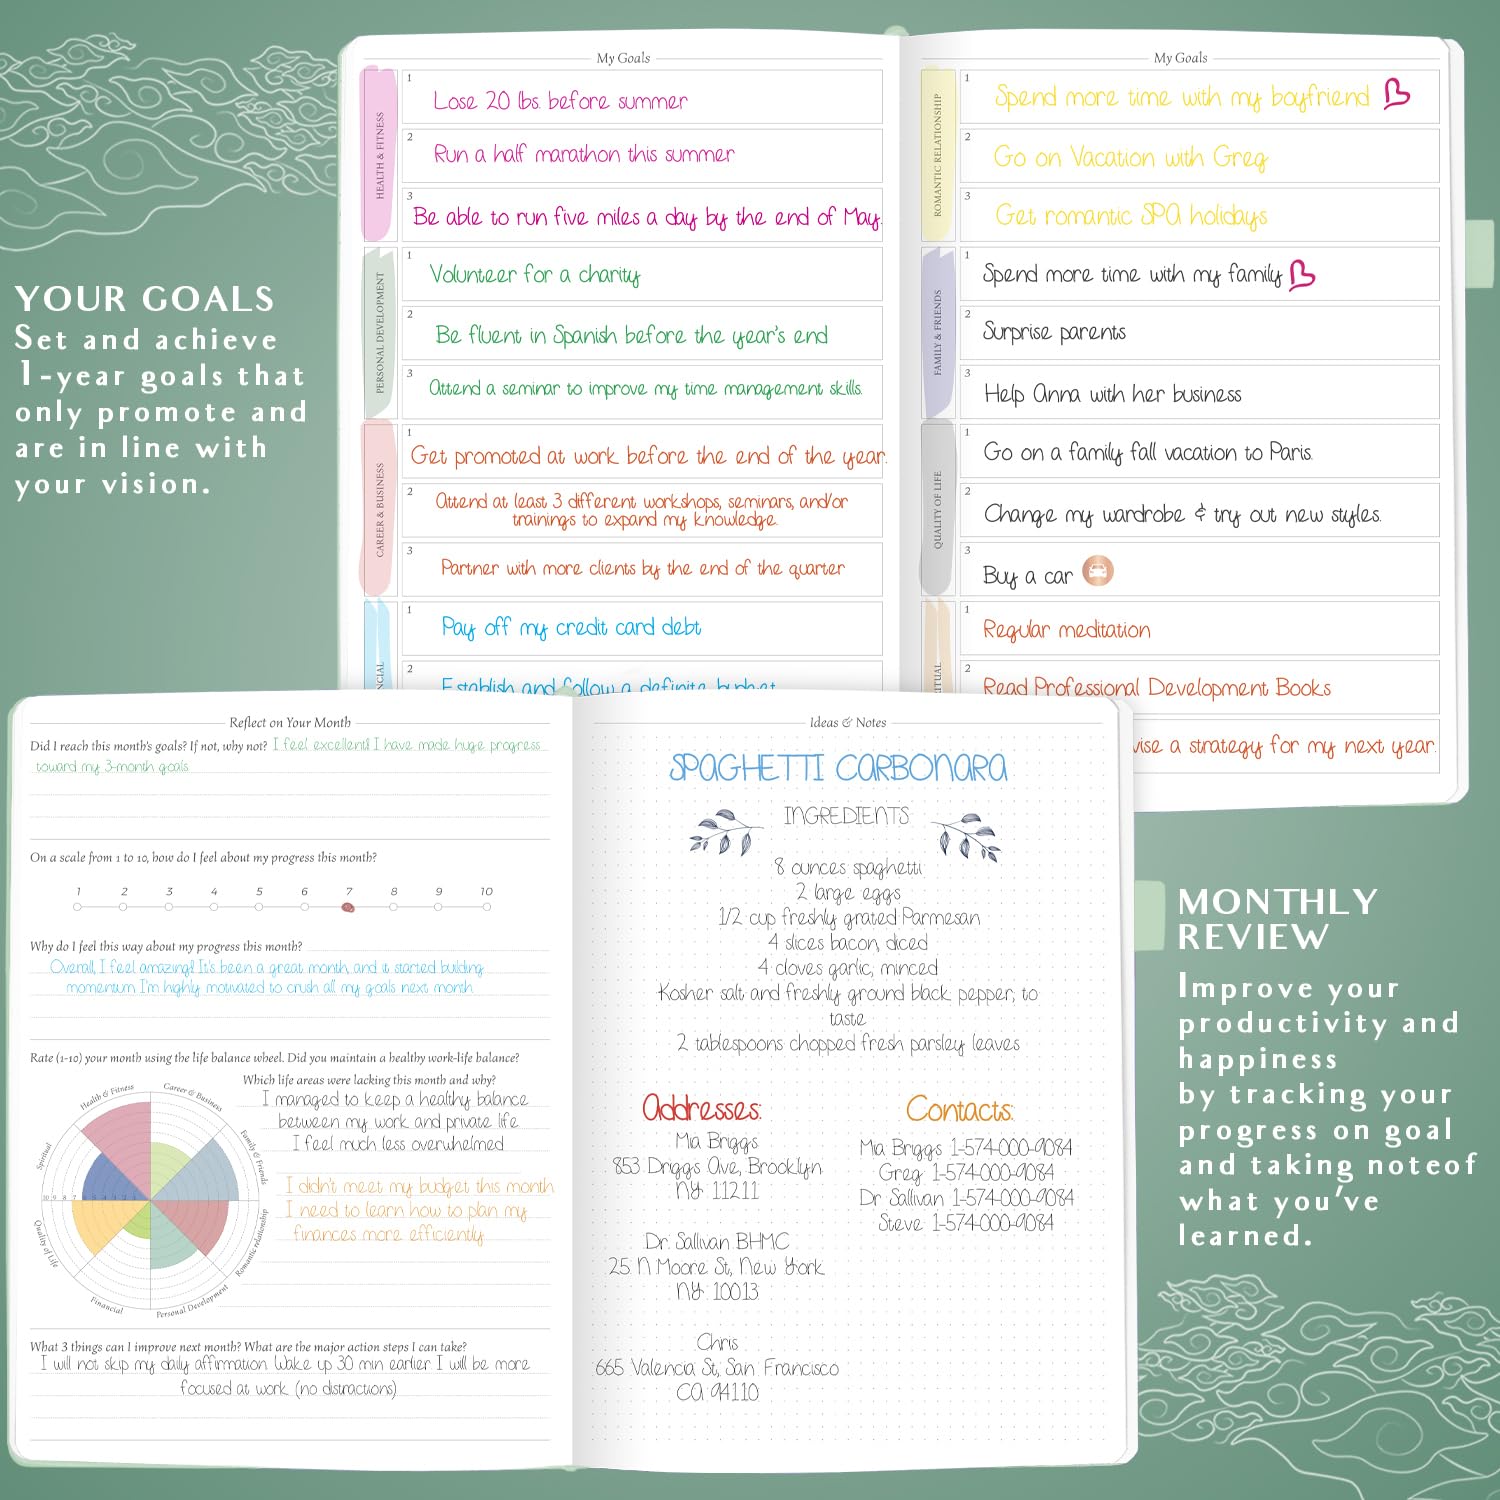 YOUR GOALS
Set and achieve
1-year goals that
only promote and
are in line with
your vision.
My Goals
HEALTH & FITNESS
1
Lose 20 lbs. before summer
2
Run a half marathon this summer
3
Be able to run five miles a day by the end of May.
PERSONAL DEVELOPMENT
1
Volunteer for a charity
2
Be fluent in Spanish before the year's end
3
Attend a seminar to improve my time management skills.
CAREER & BUSINESS
1
Get promoted at work before the end of the year.
2
Attend at least 3 different workshops, seminars, and/or
trainings to expand my knowledge.
3
Partner with more clients by the end of the quarter
NCIAL
1
Pay off my credit card debt
2
Establish and follow a definite budget
My Goals
ROMANTIC RELATIONSHIP
1
Spend more time with my boyfriend
2
Go on Vacation with Greg
3
Get romantic SPA holidays
FAMILY & FRIENDS
1
Spend more time with my family
2
Surprise parents
3
Help Anna with her business
QUALITY OF LIFE
1
Go on a family fall vacation to Paris.
2
Change my wardrobe & try out new styles.
3
Buy a car
RITUAL
1
Regular meditation
2
Read Professional Development Books
vise a strategy for my next year.
Reflect on Your Month
Did I reach this month's goals? If not, why not? I feel excellent! I have made huge progress
toward my 3-month goals
On a scale from 1 to 10, how do I feel about my progress this month?
1 2 3 4 5 6 7 8 9 10
Why do I feel this way about my progress this month?
Overall, I feel amazing! It's been a great month, and it started building
momentum. I'm highly motivated to crush all my goals next month.
Rate (1-10) your month using the life balance wheel. Did you maintain a healthy work-life balance?
Health & Fitness
Career & Business
Family & Friends
Romantic relationship
Personal Development
Financial
Quality of Life
Spiritual
10 9 8 7 6 5 4 3 2 1
Which life areas were lacking this month and why?
I managed to keep a healthy balance
between my work and private life
I feel much less overwhelmed
I didn't meet my budget this month
I need to learn how to plan my
finances more efficiently
What 3 things can I improve next month? What are the major action steps I can take?
I will not skip my daily affirmation. Wake up 30 min earlier I will be more
focused at work (no distractions)
Ideas & Notes
SPAGHETTI CARBONARA
INGREDIENTS
8 ounces spaghetti
2 large eggs
1/2 cup freshly grated Parmesan
4 slices bacon, diced
4 cloves garlic, minced
Kosher salt and freshly ground black pepper, to
taste
2 tablespoons chopped fresh parsley leaves
Addresses:
Mia Briggs
853 Driggs Ave, Brooklyn
NY 11211
Dr. Sallivan BHMC
25 N Moore St, New York
NY 10013
Chris
665 Valencia St, San Francisco
CA 94110
Contacts:
Mia Briggs 1-574-000-9084
Greg 1-574-000-9084
Dr Sallivan 1-574-000-9084
Steve 1-574-000-9084
MONTHLY
REVIEW
Improve your
productivity and
happiness
by tracking your
progress on goal
and taking noteof
what you've
learned.